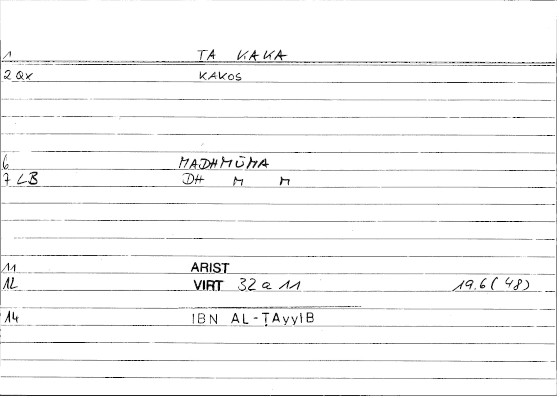 1 TA KAKA
2 QX KAKOS
6 MADHMŪMA
7 LB DH M M
11 ARIST
12 VIRT 32 a 11 19.6 (48)
14 IBN AL-ṬAyyIB